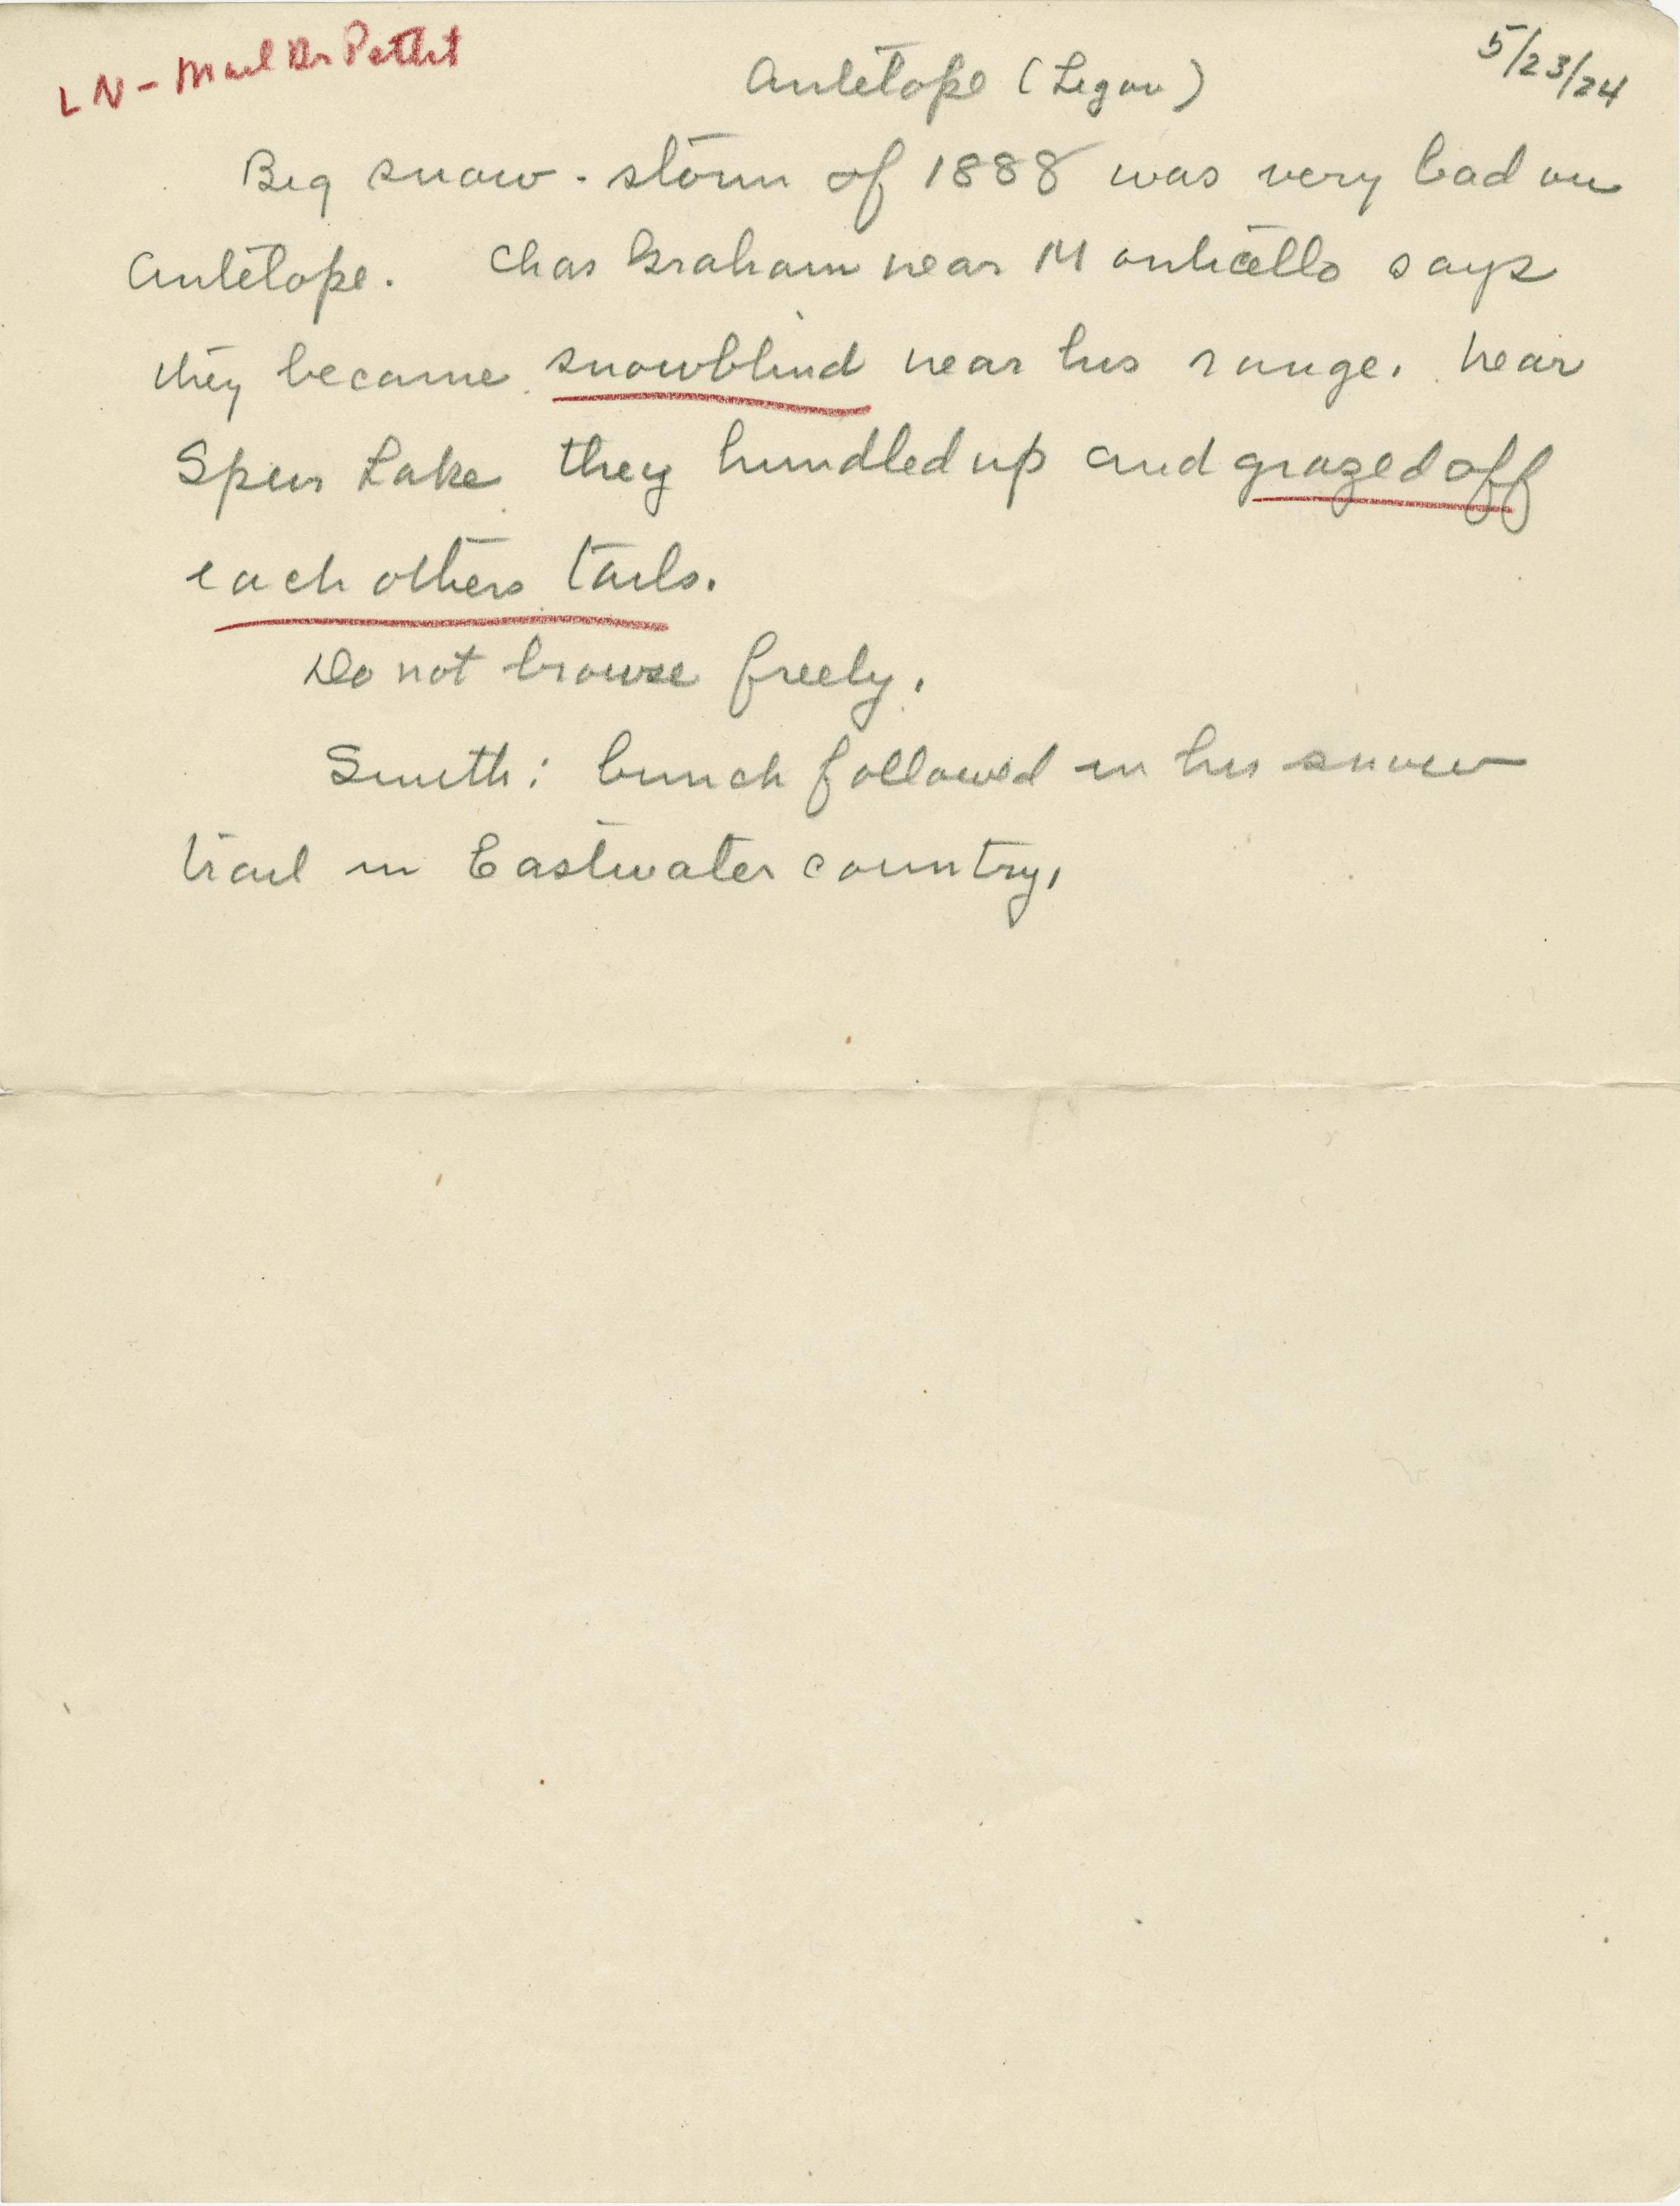 LN - Mail Dr Pettit
5/23/24
Antelope (Ligon)
Big snow-storm of 1888 was very bad on
antelope. Chas Graham near Monticello says
they became snowblind near his range. Near
Spur Lake they hundled up and grazed off
each others tails.
Do not browse freely.
Smith: bunch followed in his snow
trail in Eastwater country.